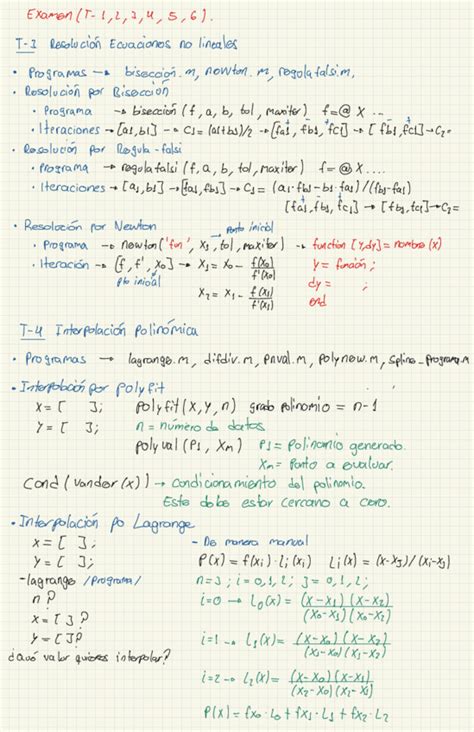 Examen (T-1, 2, 3, 4, 5, 6).
T-3 Resolución Ecuaciones no lineales
• Programas → bisección.m, newton.m, regolafalsi.m,
• Resolución por Bisección
• Programa → bisección (f, a, b, tol, maxiter) f=@ X ....
• Iteraciones → [a1, b1] → C1= (a1+b1)/2 → [fa1, fb1, fc1] → [fb1, fc1] → C2=
• Resolución por Regula-falsi
• Programa → regolafalsi (f, a, b, tol, maxiter) f=@ X ....
• Iteraciones → [a1, b1] → [fa1, fb1] → C1= (a1·fb1 - b1·fa1) / (fb1-fa1)
[fa1, fb1, fc1] → [fb1, fc1] → C2=
• Resolución por Newton
Punto inicial
• Programa → newton ('fun', X1, tol, maxiter) → function [y,dy] = nombre (x)
• Iteración → [f, f', X0] → X1 = X0 - f(X0)/f'(X0) y = función ;
Pto inicial
dy = ;
X2 = X1 - f(X1)/f'(X1) end
T-4 Interpolación Polinómica
• Programas → lagrange.m, difdiv.m, pnval.m, polynew.m, spline_programa.m
• Interpolación por Polyfit
X = [ ]; polyfit (X, Y, n) grado polinomio = n-1
Y = [ ]; n = número de datos
polyval (P1, Xm) P1 = Polinomio generado.
Xm = Punto a evaluar.
Cond (vander (x)) → condicionamiento del polinomio.
Este debe estar cercano a cero.
• Interpolación po Lagrange
X = [ ]; - De manera manual
Y = [ ]; P(x) = f(xi)·li(xi) Li(x) = (x-xj)/(xi-xj)
- lagrange /Programa/ n=3 ; i=0,1,2 ; J=0,1,2 ;
n ? i=0 → L0(x) = (x-x1)(x-x2)/(x0-x1)(x0-x2)
X = [ ]?
Y = [ ]? i=1 → L1(x) = (x-x0)(x-x2)/(x1-x0)(x1-x2)
¿Qué valor quieres interpolar?
i=2 → L2(x) = (x-x0)(x-x1)/(x2-x0)(x2-x1)
P(x) = fx0·L0 + fx1·L1 + fx2·L2